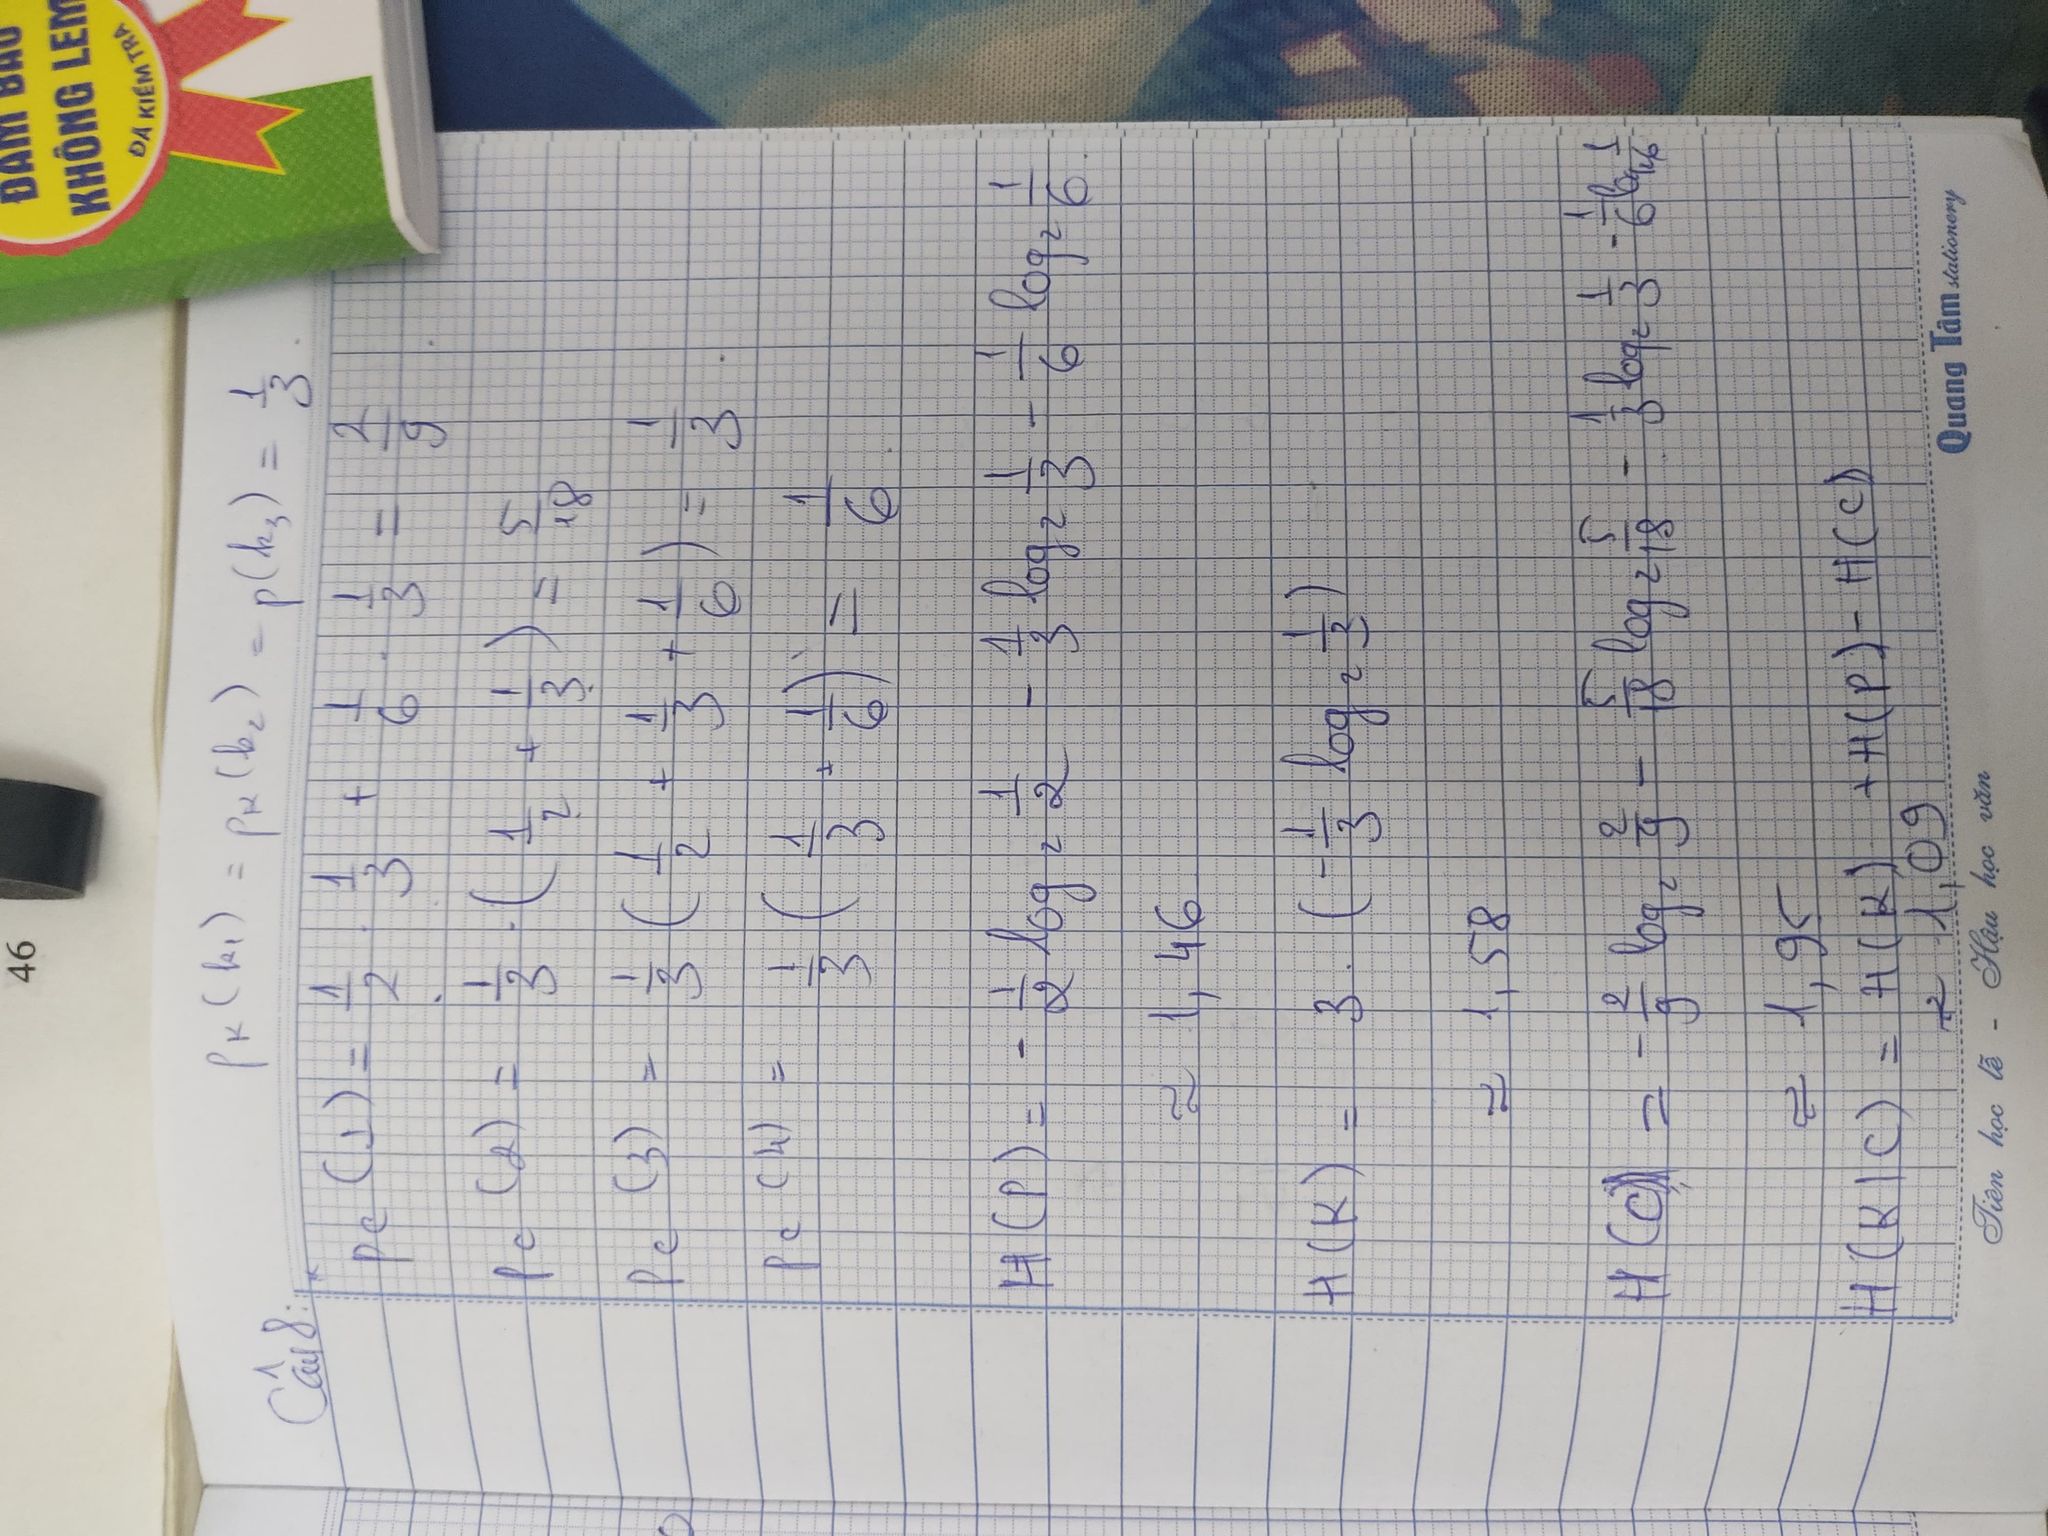 ĐẢM BẢO
KHÔNG LEM
ĐÃ KIỂM TRA
46
Câu 8:
pK(k1) = pK(k2) = p(k3) = 1/3
pc(1) = 1/2 . 1/3 + 1/6 . 1/3 = 2/9
pc(2) = 1/3 . (1/2 + 1/3) = 5/18
pc(3) = 1/3 (1/2 + 1/3 + 1/6) = 1/3
pc(4) = 1/3 (1/3 + 1/6) = 1/6
H(P) = - 1/2 log2 1/2 - 1/3 log2 1/3 - 1/6 log2 1/6
≈ 1,46
H(K) = 3 . (- 1/3 log2 1/3)
≈ 1,58
H(C) = - 2/9 log2 2/9 - 5/18 log2 5/18 - 1/3 log2 1/3 - 1/6 log2 1/6
≈ 1,95
H(K|C) = H(K) + H(P) - H(C)
≈ 1,09
Tiên học lễ - Hậu học văn
Quang Tâm stationery